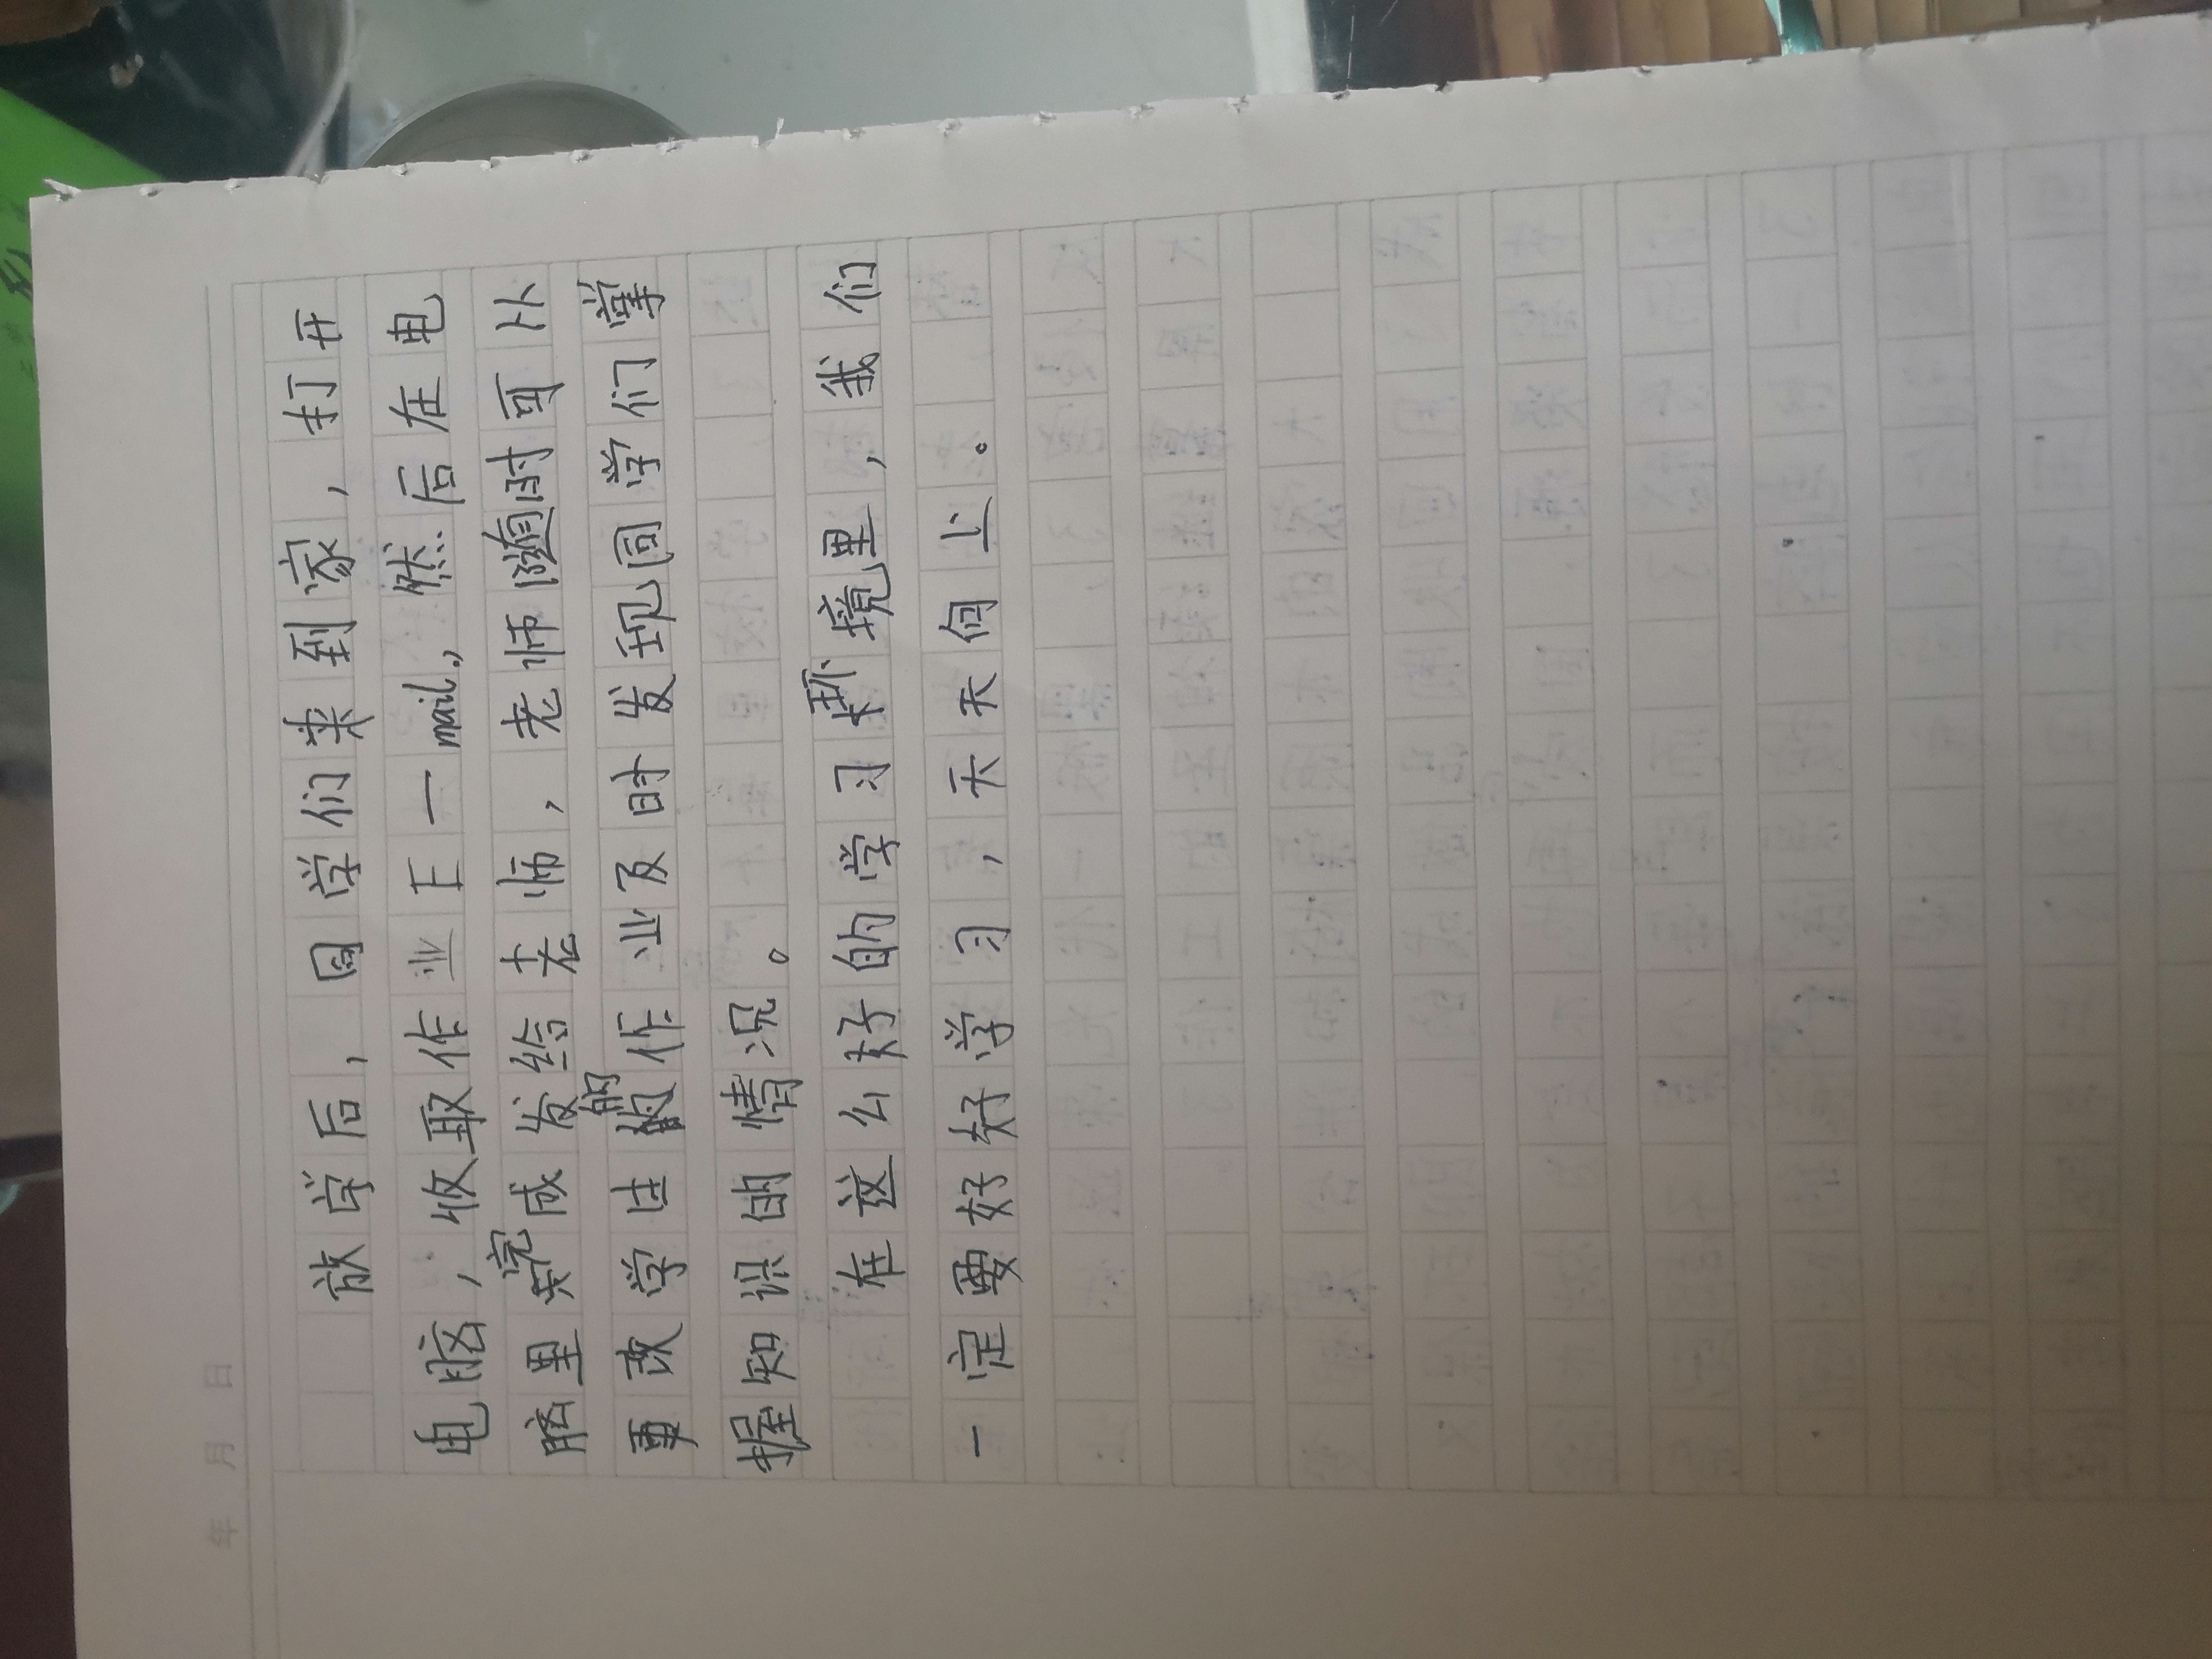 年 月 日
放学后，同学们来到家，打开
电脑，收取作业E一mail，然后在电
脑里完成发给老师，老师随时可以
更改学生的作业及时发现同学们掌
握知识的情况。
在这么好的学习环境里，我们
一定要好好学习，天天向上。